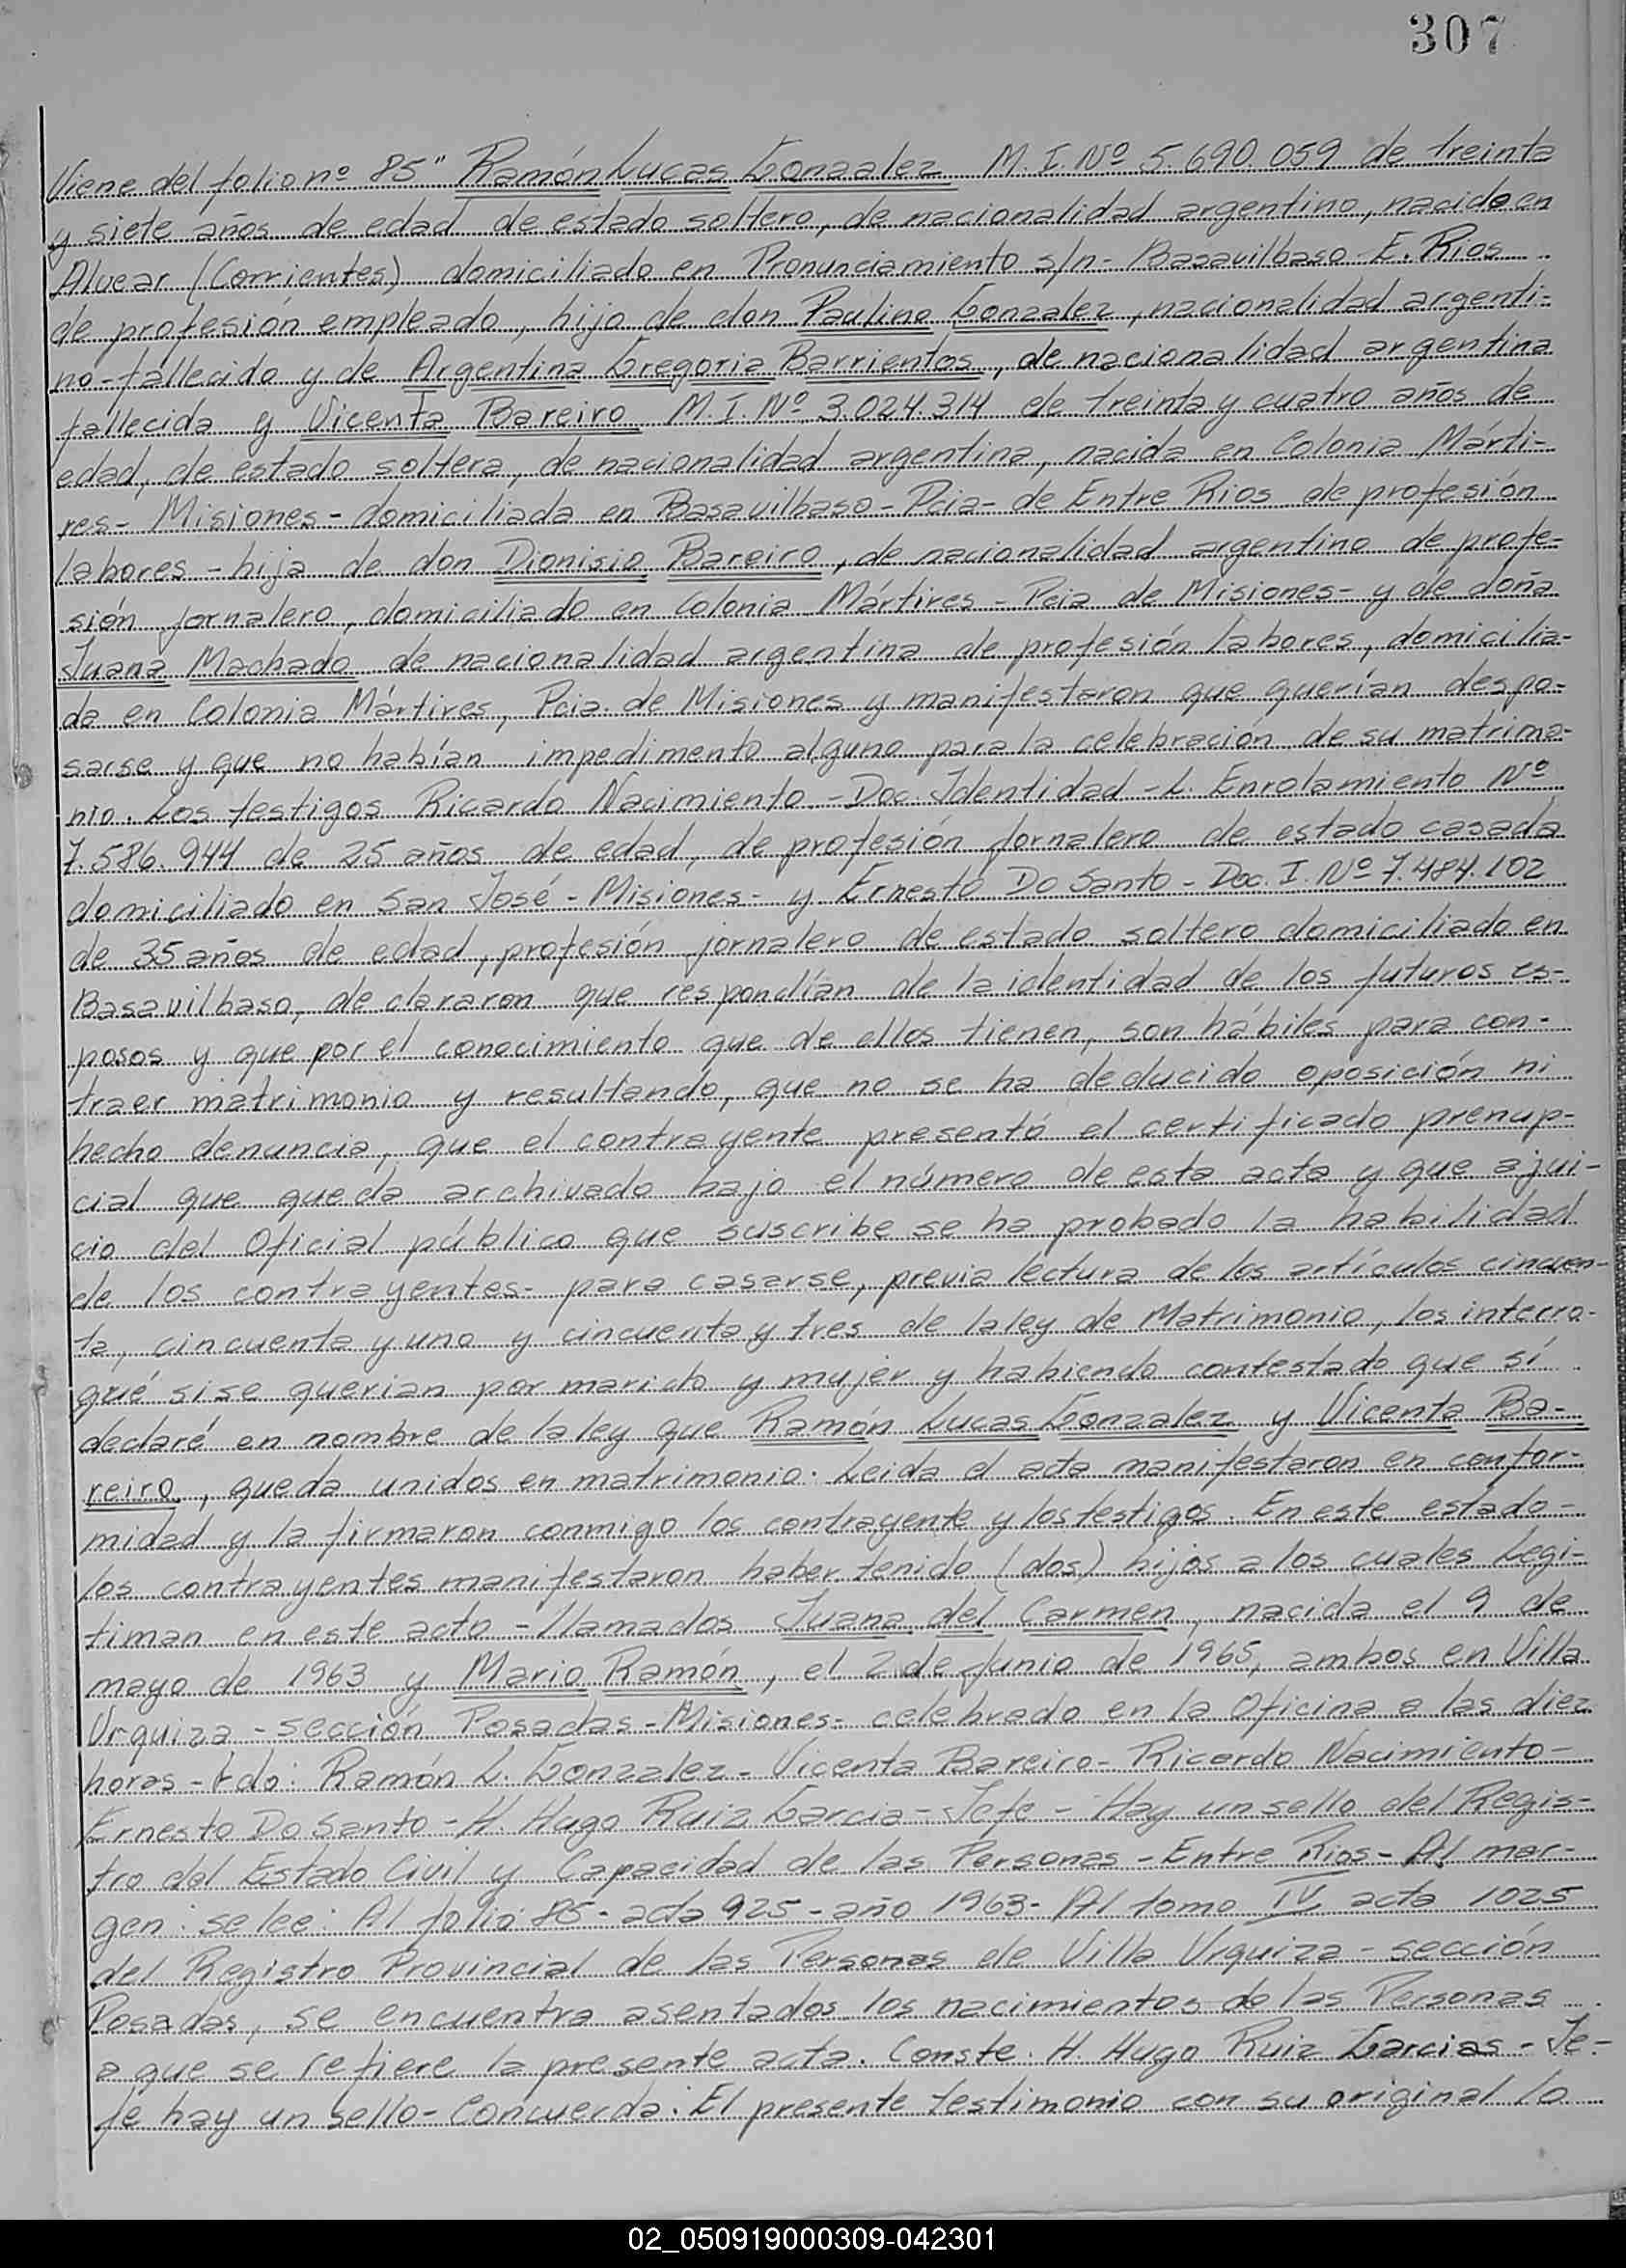 307
Viene del folio nº 85" Ramón Lucas Gonzalez M. I. Nº 5.690.059 de treinta
y siete años de edad de estado soltero, de nacionalidad argentino, nacido en
Alvear (Corrientes) domiciliado en Pronunciamiento s/n - Basavilbaso - E. Rios
de profesión empleado, hijo de don Paulino Gonzalez, nacionalidad argenti-
no - fallecido y de Argentina Gregoria Barrientos, de nacionalidad argentina
fallecida y Vicenta Bareiro M. I. Nº 3.024.314 de treinta y cuatro años de
edad, de estado soltera, de nacionalidad argentina, nacida en Colonia Márti-
res - Misiones - domiciliada en Basavilbaso - Pcia - de Entre Rios de profesión
labores - hija de don Dionisio Bareiro, de nacionalidad argentino de profe-
sión jornalero, domiciliado en Colonia Mártires - Pcia de Misiones - y de doña
Juana Machado de nacionalidad argentina de profesión labores, domicilia-
da en Colonia Mártires, Pcia. de Misiones y manifestaron que querían despo-
sarse y que no habían impedimento alguno para la celebración de su matrimo-
nio. Los testigos Ricardo Nacimiento - Doc. Identidad - L. Enrolamiento Nº
7.586.944 de 25 años de edad, de profesión jornalero de estado casada
domiciliado en San José - Misiones - y Ernesto Do Santo - Doc. I. Nº 7.484.102
de 35 años de edad, profesión jornalero de estado soltero domiciliado en
Basavilbaso, declararon que respondían de la identidad de los futuros es-
posos y que por el conocimiento que de ellos tienen, son hábiles para con-
traer matrimonio y resultando, que no se ha deducido oposición ni
hecho denuncia, que el contrayente presentó el certificado prenup-
cial que queda archivado bajo el número de esta acta y que a jui-
cio del Oficial público que suscribe se ha probado la habilidad
de los contrayentes - para casarse, previa lectura de los artículos cincuen-
ta, cincuenta y uno y cincuenta y tres de la ley de Matrimonio, los interro-
gué si se querian por marido y mujer y habiendo contestado que sí
declaré en nombre de la ley que Ramón Lucas Gonzalez y Vicenta Ba-
reiro, queda unidos en matrimonio. Leida el acta manifestaron en confor-
midad y la firmaron conmigo los contrayente y los testigos. En este estado -
los contrayentes manifestaron haber tenido (dos) hijos a los cuales Legi-
timan en este acto - llamados Juana del Carmen, nacida el 9 de
mayo de 1963 y Mario Ramón, el 2 de Junio de 1965, ambos en Villa
Urquiza - sección Posadas - Misiones - celebrado en la Oficina a las diez
horas - Fdo: Ramón L. Gonzalez - Vicenta Bareiro - Ricardo Nacimiento -
Ernesto Do Santo - H. Hugo Ruiz Garcia - Jefe - Hay un sello del Regis-
tro del Estado Civil y Capacidad de las Personas - Entre Rios - Al mar-
gen: se lee: Al folio 85 - acta 925 - año 1963 - Al tomo IV acta 1025
del Registro Provincial de las Personas de Villa Urquiza - sección
Posadas, se encuentra asentados los nacimientos de las Personas
a que se refiere la presente acta. Conste. H. Hugo Ruiz Garcias - Je-
fe hay un sello - Concuerda: El presente testimonio con su original lo
02_050919000309-042301